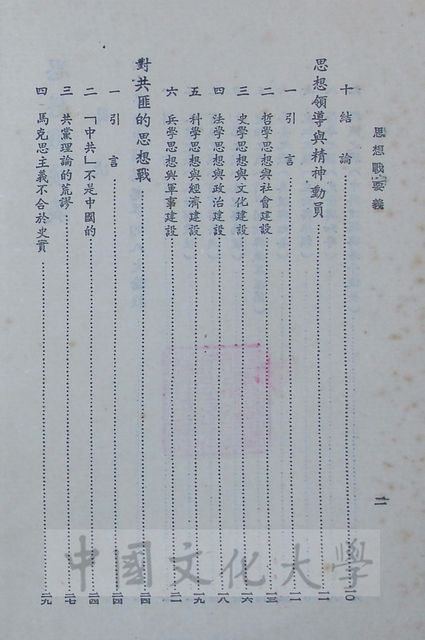 思想戰要義
二
十 結論 二〇
思想領導與精神動員 二一
一 引言 二一
二 哲學思想與社會建設 一三
三 史學思想與文化建設 一六
四 法學思想與政治建設 一八
五 科學思想與經濟建設 一九
六 兵學思想與軍事建設 二一
對共匪的思想戰 二四
一 引言 二四
二 「中共」不是中國的 二四
三 共黨理論的荒謬 二七
四 馬克思主義不合於史實 二九
中國文化大學